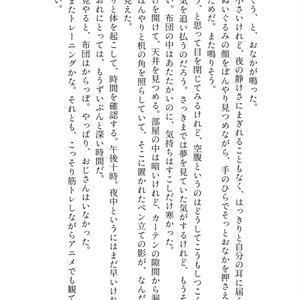 くう、と、おなかが鳴った。
小さいけれど、夜の静けさにまぎれることもなく、はっきりと自分の耳に届
ぬいぐるみの頭をぼんやり見つめながら、手のひらでそっとおなかを押さえ
だめだ。また鳴りそう。
う、と思って目を閉じてみるけれど、空腹というのはどうしてこうもしつこ
気を追い払うのだろう。さっきまでは夢を見ていた気がするけれど、もうそ
。布団の中はあたたかいのに、気持ちはすこしだけ寒かった。
を開けて、天井を見つめる。部屋の中は暗いけれど、カーテンの隙間から漏
んやりと机の角を照らしていて、そこに置かれたペン立ての影が、なんだ
見えた。
りと体を起こして、時間を確認する。午後十時。夜中というにはまだ早いけれ
おれにとっては、もうずいぶんと深い時間だ。
見やると、布団はからっぽ。やっぱり、おじさんはいなかった。
またトレーニングかな。それとも、こっそり筋トレしながらアニメでも観て